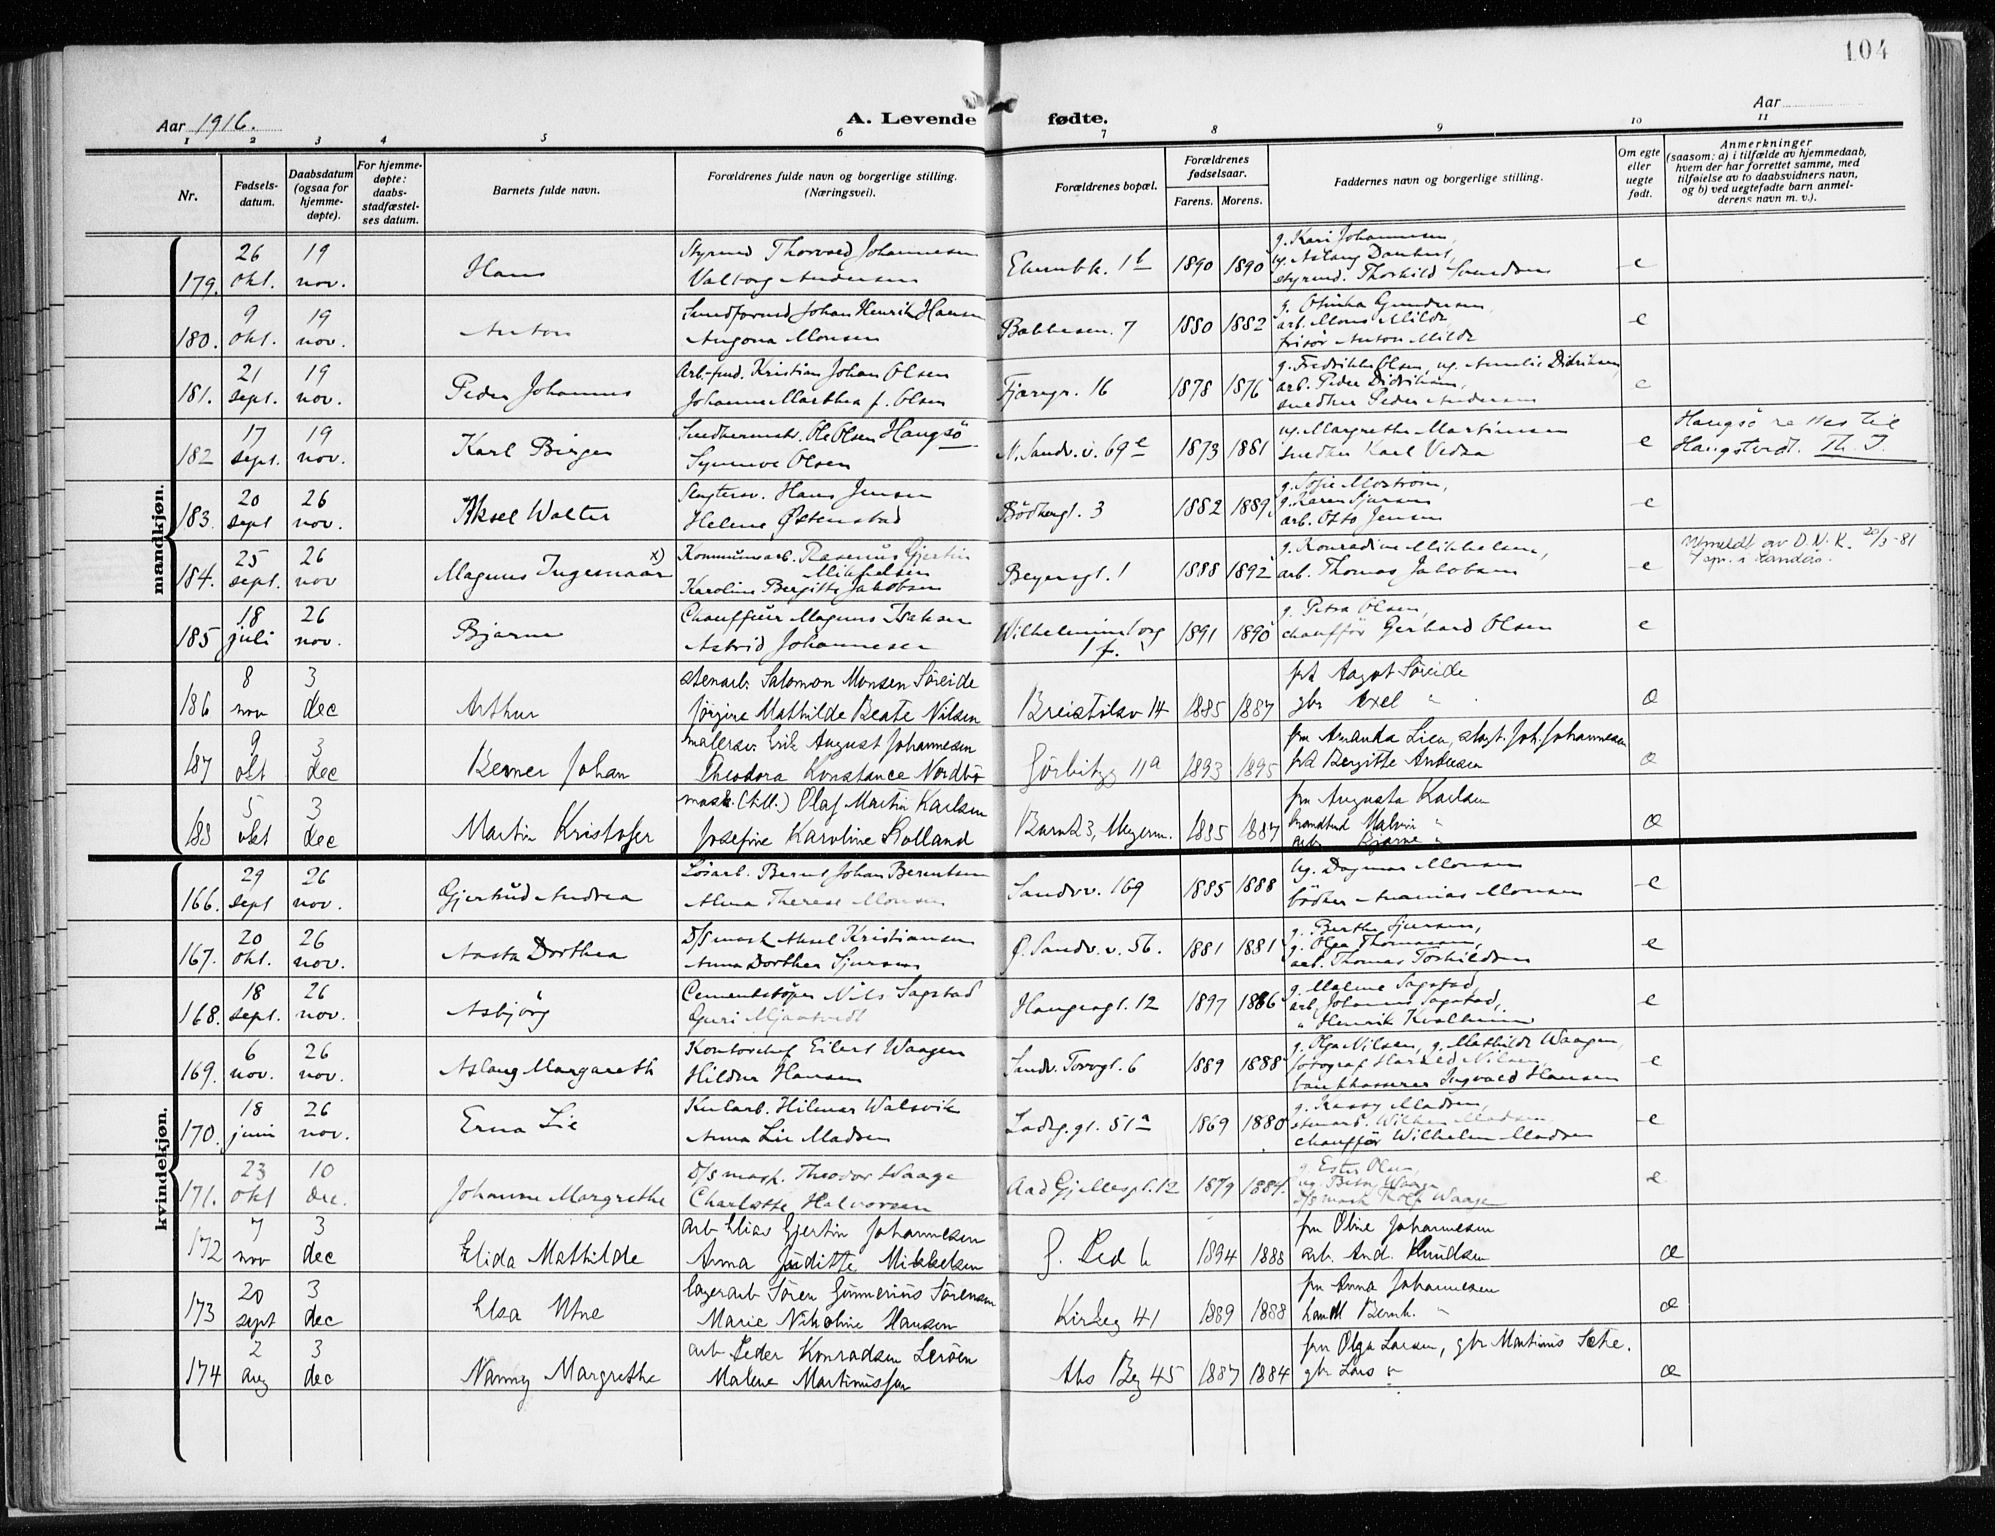 104
Aar 1916.
A. Levende fødte.
Aar
1 2 3 4 5 6 7 8 9 10 11
Nr.
Fødsels-
datum.
Daabsdatum
(ogsaa for
hjemme-
døpte).
For hjemme-
døpte:
daabs-
stadfæstel-
ses datum.
Barnets fulde navn.
Forældrenes fulde navn og borgerlige stilling.
(Næringsvei).
Forældrenes bopæl.
Forældrenes
fødselsaar.
Farens. Morens.
Faddernes navn og borgerlige stilling.
Om egte
eller
uegte
født.
Anmerkninger
(saasom: a) i tilfælde av hjemmedaab,
hvem der har forrettet samme, med
tilføielse av to daabsvidners navn,
og b) ved uegtefødte barn anmel-
derens navn m. v.).
mandkjøn.
179. 26 okt. 19 nov. Hans
Styrmd Thorvald Johannesen
Valborg Andersen
1b 1890 1890
g. Kari Johannesen,
ug. Aslaug
styrmd. Thorbild Svendsen
e
180. 9 okt. 19 nov. Anton
Johan Henrik Hansen
Augona Monsen
7 1880 1882
g. Gundersen,
arb. Mons Milde
frisør Anton Milde
e
181. 21 sept. 19 nov. Peder Johannes
Arb.-fmd. Kristian Johan Olsen
Johanne Marthea f. Olsen
Fjæregr. 16 1878 1876
g. Fredrikke Olsen, ug. Amalie Didriksen,
arb. Peder Didriksen,
snedker Peder Andersen
e
182 17 sept. 19 nov. Karl Birger
Snedkermstr. Ole Olsen Haugsö
Synneve Olsen
N. Sandv. v. 69e 1873 1881
ug. Margrethe Martinsen
snedker Karl Vedaa
e
Haugsö rettes til
Haugstvedt. Th. J.
183. 20 sept 26 nov. Aksel Walter
Slagtersv. Hans Jensen
Helene Østensstad
Bödkergt. 3 1882 1889
g. Sofie Moström,
g. Karen Sjursen
arb. Otto Jensen
e
184. 25 sept. 26 nov Magnus Ingemaar x)
Kommunearb. Rasmus Gjertin
Mikkelsen
Karoline Bergitte Jakobsen
Beyersgt. 1 1888 1892
g. Konradine Mikkelsen,
arb. Thomas Jakobsen
e
Utmeldt av D. N. K. 20/3-81
185 18 juli 26 nov. Bjarne
Chauffeur Magnus Isaksen
Astrid Johannesen
Wilhelmineborg
1 f. 1891 1890
g. Petra Olsen,
chauffør Gerhard Olsen
e
186 8 nov 3 dec Arthur
stenarb. Salomon Monsen Söreide
Jörgine Mathilde Beate Nilsen
Breistölsv 14 1885 1887
frk Aagot Söreide
gbr Axel "
æ
187 9 okt 3 dec Berner Johan
malersv. Erik August Johannesen
Theodora Konstance Nordbö
11a 1893 1895
fru Amanda Lien, slagt. Joh. Johannesen
frk Bergitte Andersen
æ
188 5 okt 3 dec Martin Kristofer
mask. Olaf Martin Karlsen
Josefine Karoline Rolland
23, 1885 1887
fru Augusta Karlsen
Malvin "
arb Bjarne "
æ
kvindekjøn.
166. 29 sept 26 nov. Gjertrud Andrea
Løsarb. Bernt Johan Berntsen
Alma Therese Monsen
Sandvv. 169 1885 1888
ug. Dagmar Monsen
bödker Ananias Monsen
e
167. 20 okt. 26 nov. Aasta Dorthea
D/S mask Aksel Kristiansen
Anna Dorthea Sjursen
Ø. Sandv. v. 56. 1881 1881
g. Berthe Sjursen,
g. Olga Thomassen,
arb. Thomas Torkildsen
e
168. 18 sept. 26 nov. Asbjörg
Cementstöper Nils Sagstad
Guri Mjaatvedt
Haugesgt. 12 1897 1886
g. Malene Sagstad,
arb. Johannes Sagstad,
" Henrik Kvalheim
e
169. 6 nov. 26 nov. Aslaug Margareth
Kontorchef Eilert Waagen
Hildur Hansen
Sandv. Torvgt. 6 1889 1888
g. Olga Nilsen, g. Mathilde Waagen,
fotograf Harald Nilsen,
bankkasserer Ingvald Hansen
e
170. 18 juni 26 nov. Erna Lie
Kularb. Hilmar Walsvik
Anna Lie Madsen
Ladeg. gt. 51a 1869 1880
g. Kassy Madsen,
stenarb. Wilhelm Madsen
chauffør Wilhelm Madsen
e
171. 23 okt 10 dec. Johanne Margrethe
D/S mask. Theodor Waage
Charlotte Halvorsen
Aad Gjellesgt. 12 1879 1884.
g. Ester Olsen,
ug. Betsy Waage
D/S mask Rolf Waage
e
172 7 nov 3 dec Elida Mathilde
arb Elias Gjertin Johannesen
Anna Juditte Mikkelsen
6 1894 1888
fru Oline Johannesen
arb. And. Knudsen
æ
173 20 sept 3 dec Elsa Utne
lagerarb Sören Gunnerius Sörensen
Marie Nikoline Hansen
Kirkeg 41 1889 1888
fru Anna Johannesen
handl Bernh. "
æ
174 2 aug 3 dec Nanny Margrethe
arb Peder Konradsen Leröen
Malene Martinussen
45 1887 1884
fru Olga Larsen, gbr Martinus Sæte.
gbr Lars "
æ